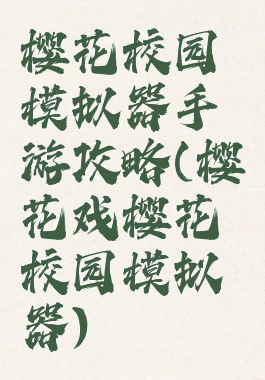 樱花校园
模拟器手
游攻略(樱
花戏樱花
校园模拟
器)